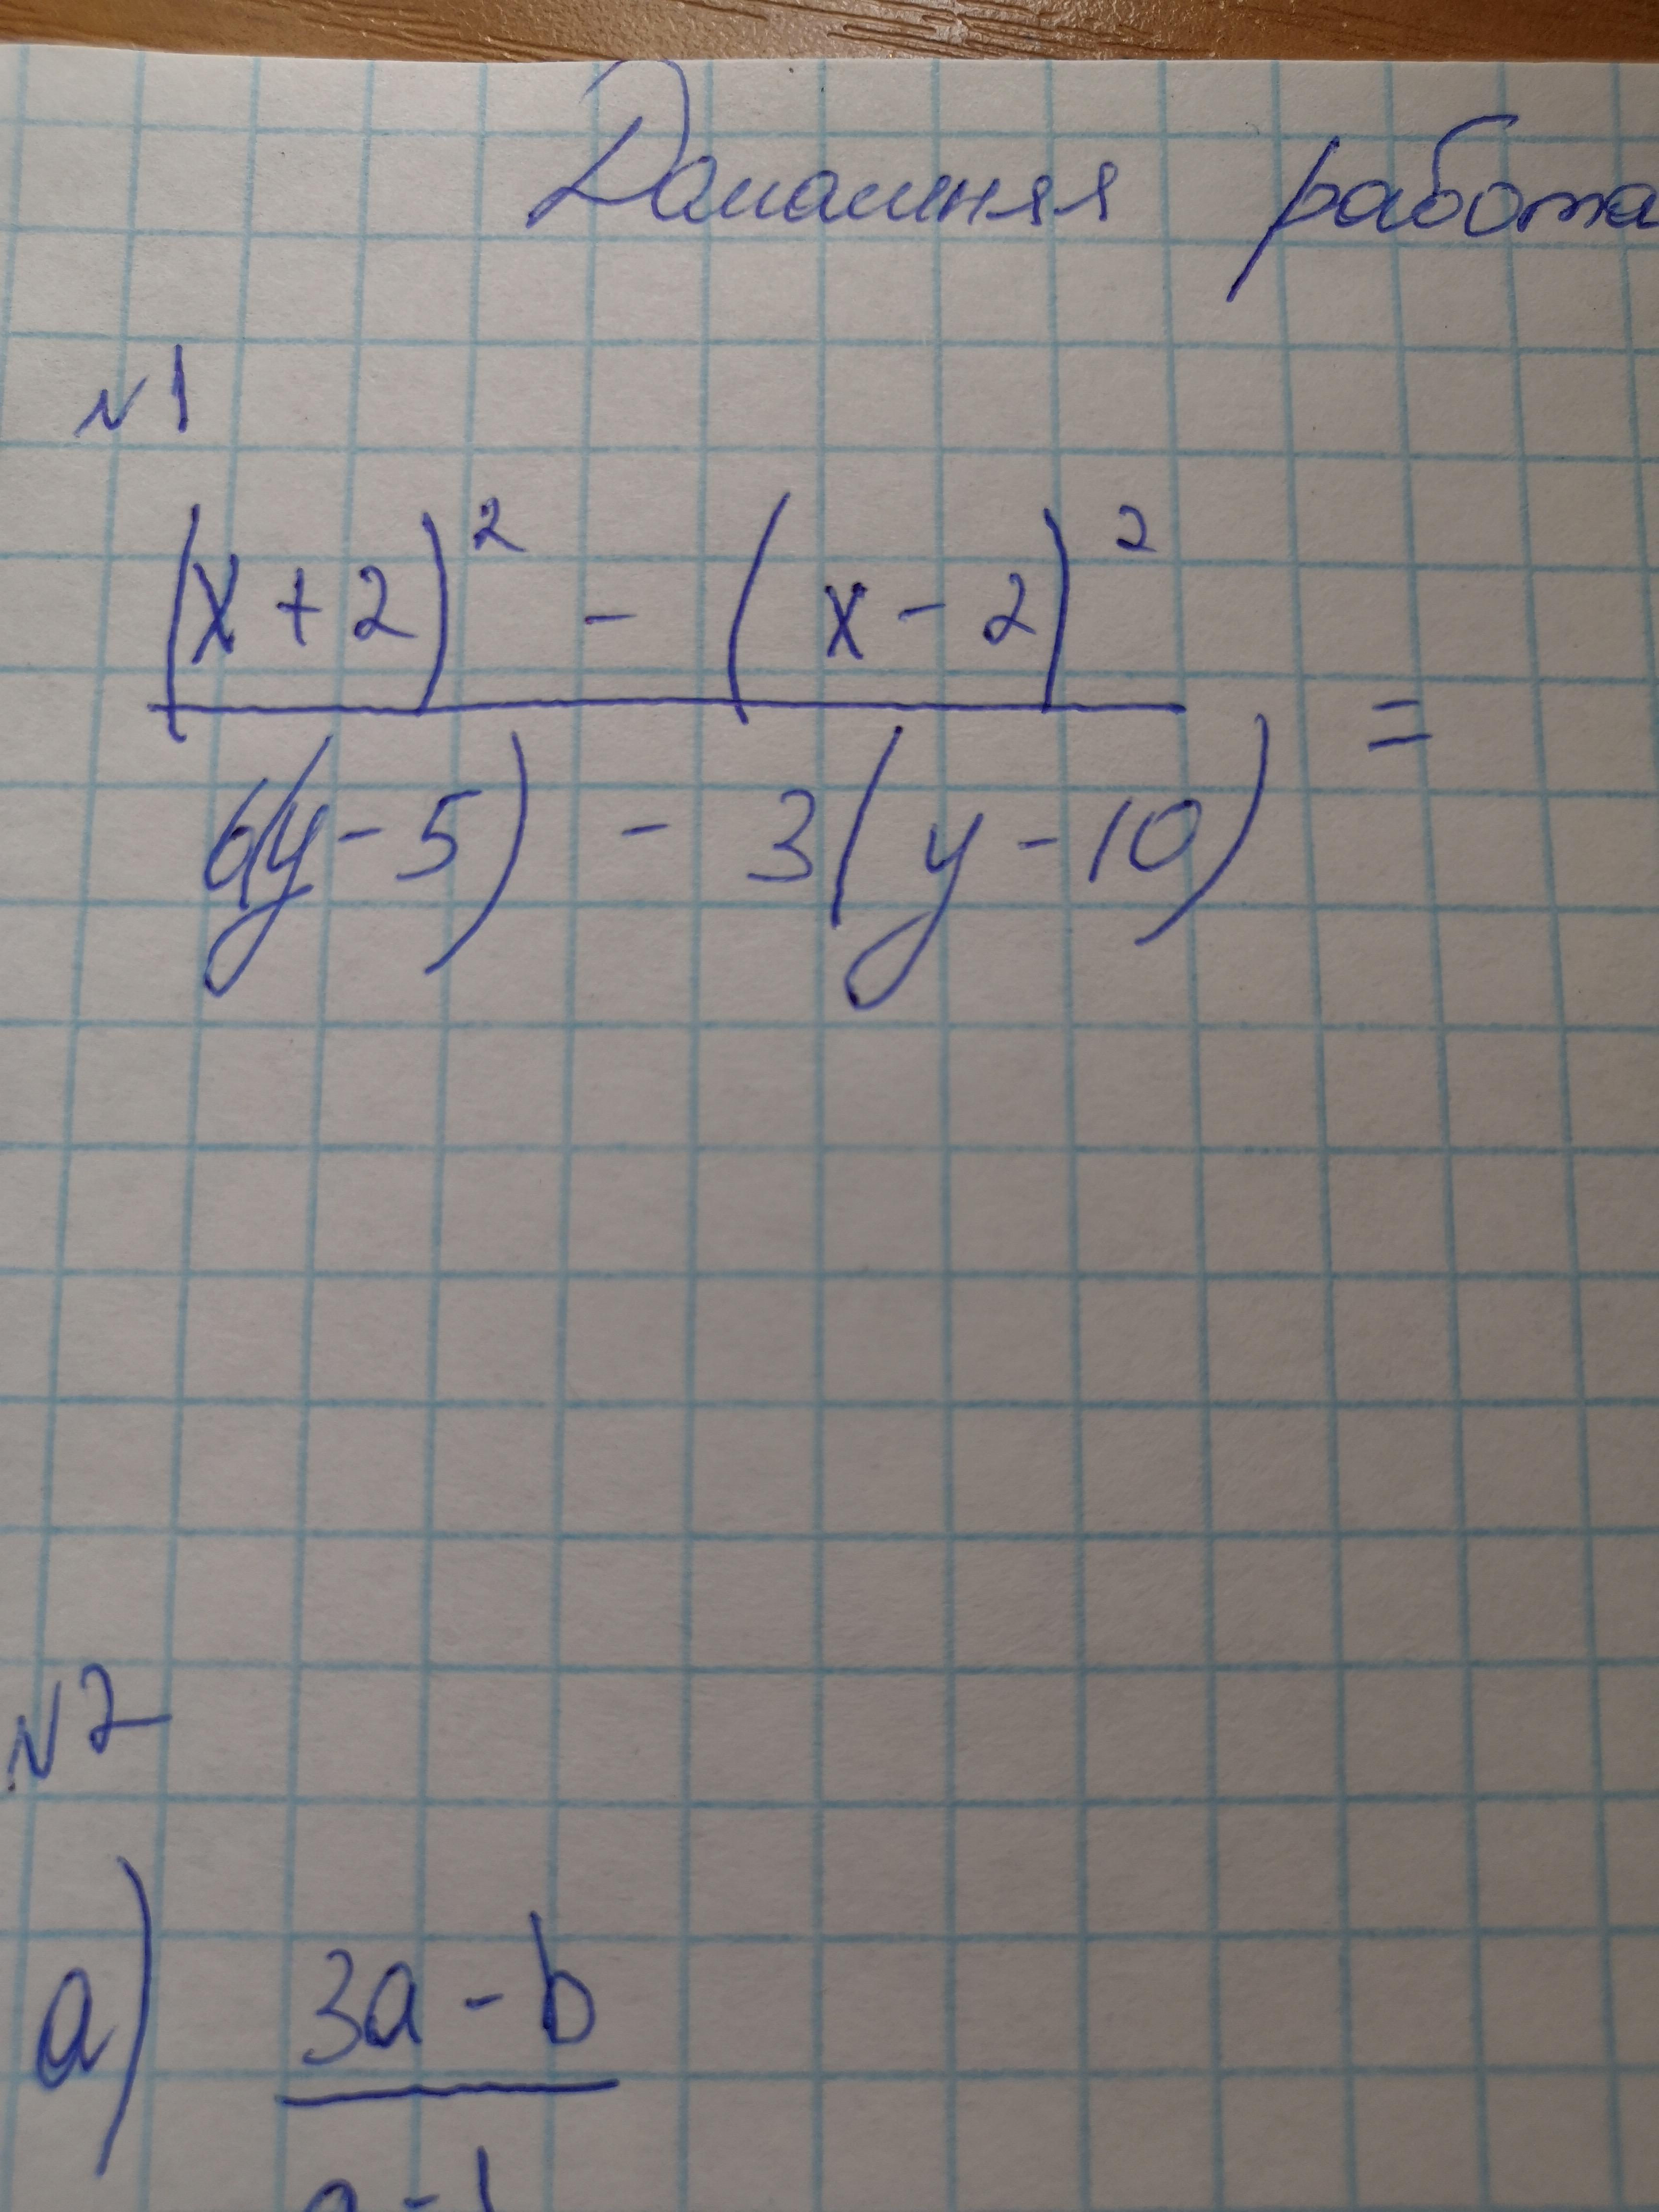 Домашняя работа
№1
(x+2)² - (x-2)²
6(y-5) - 3(y-10) =
№2
а) 3a-b